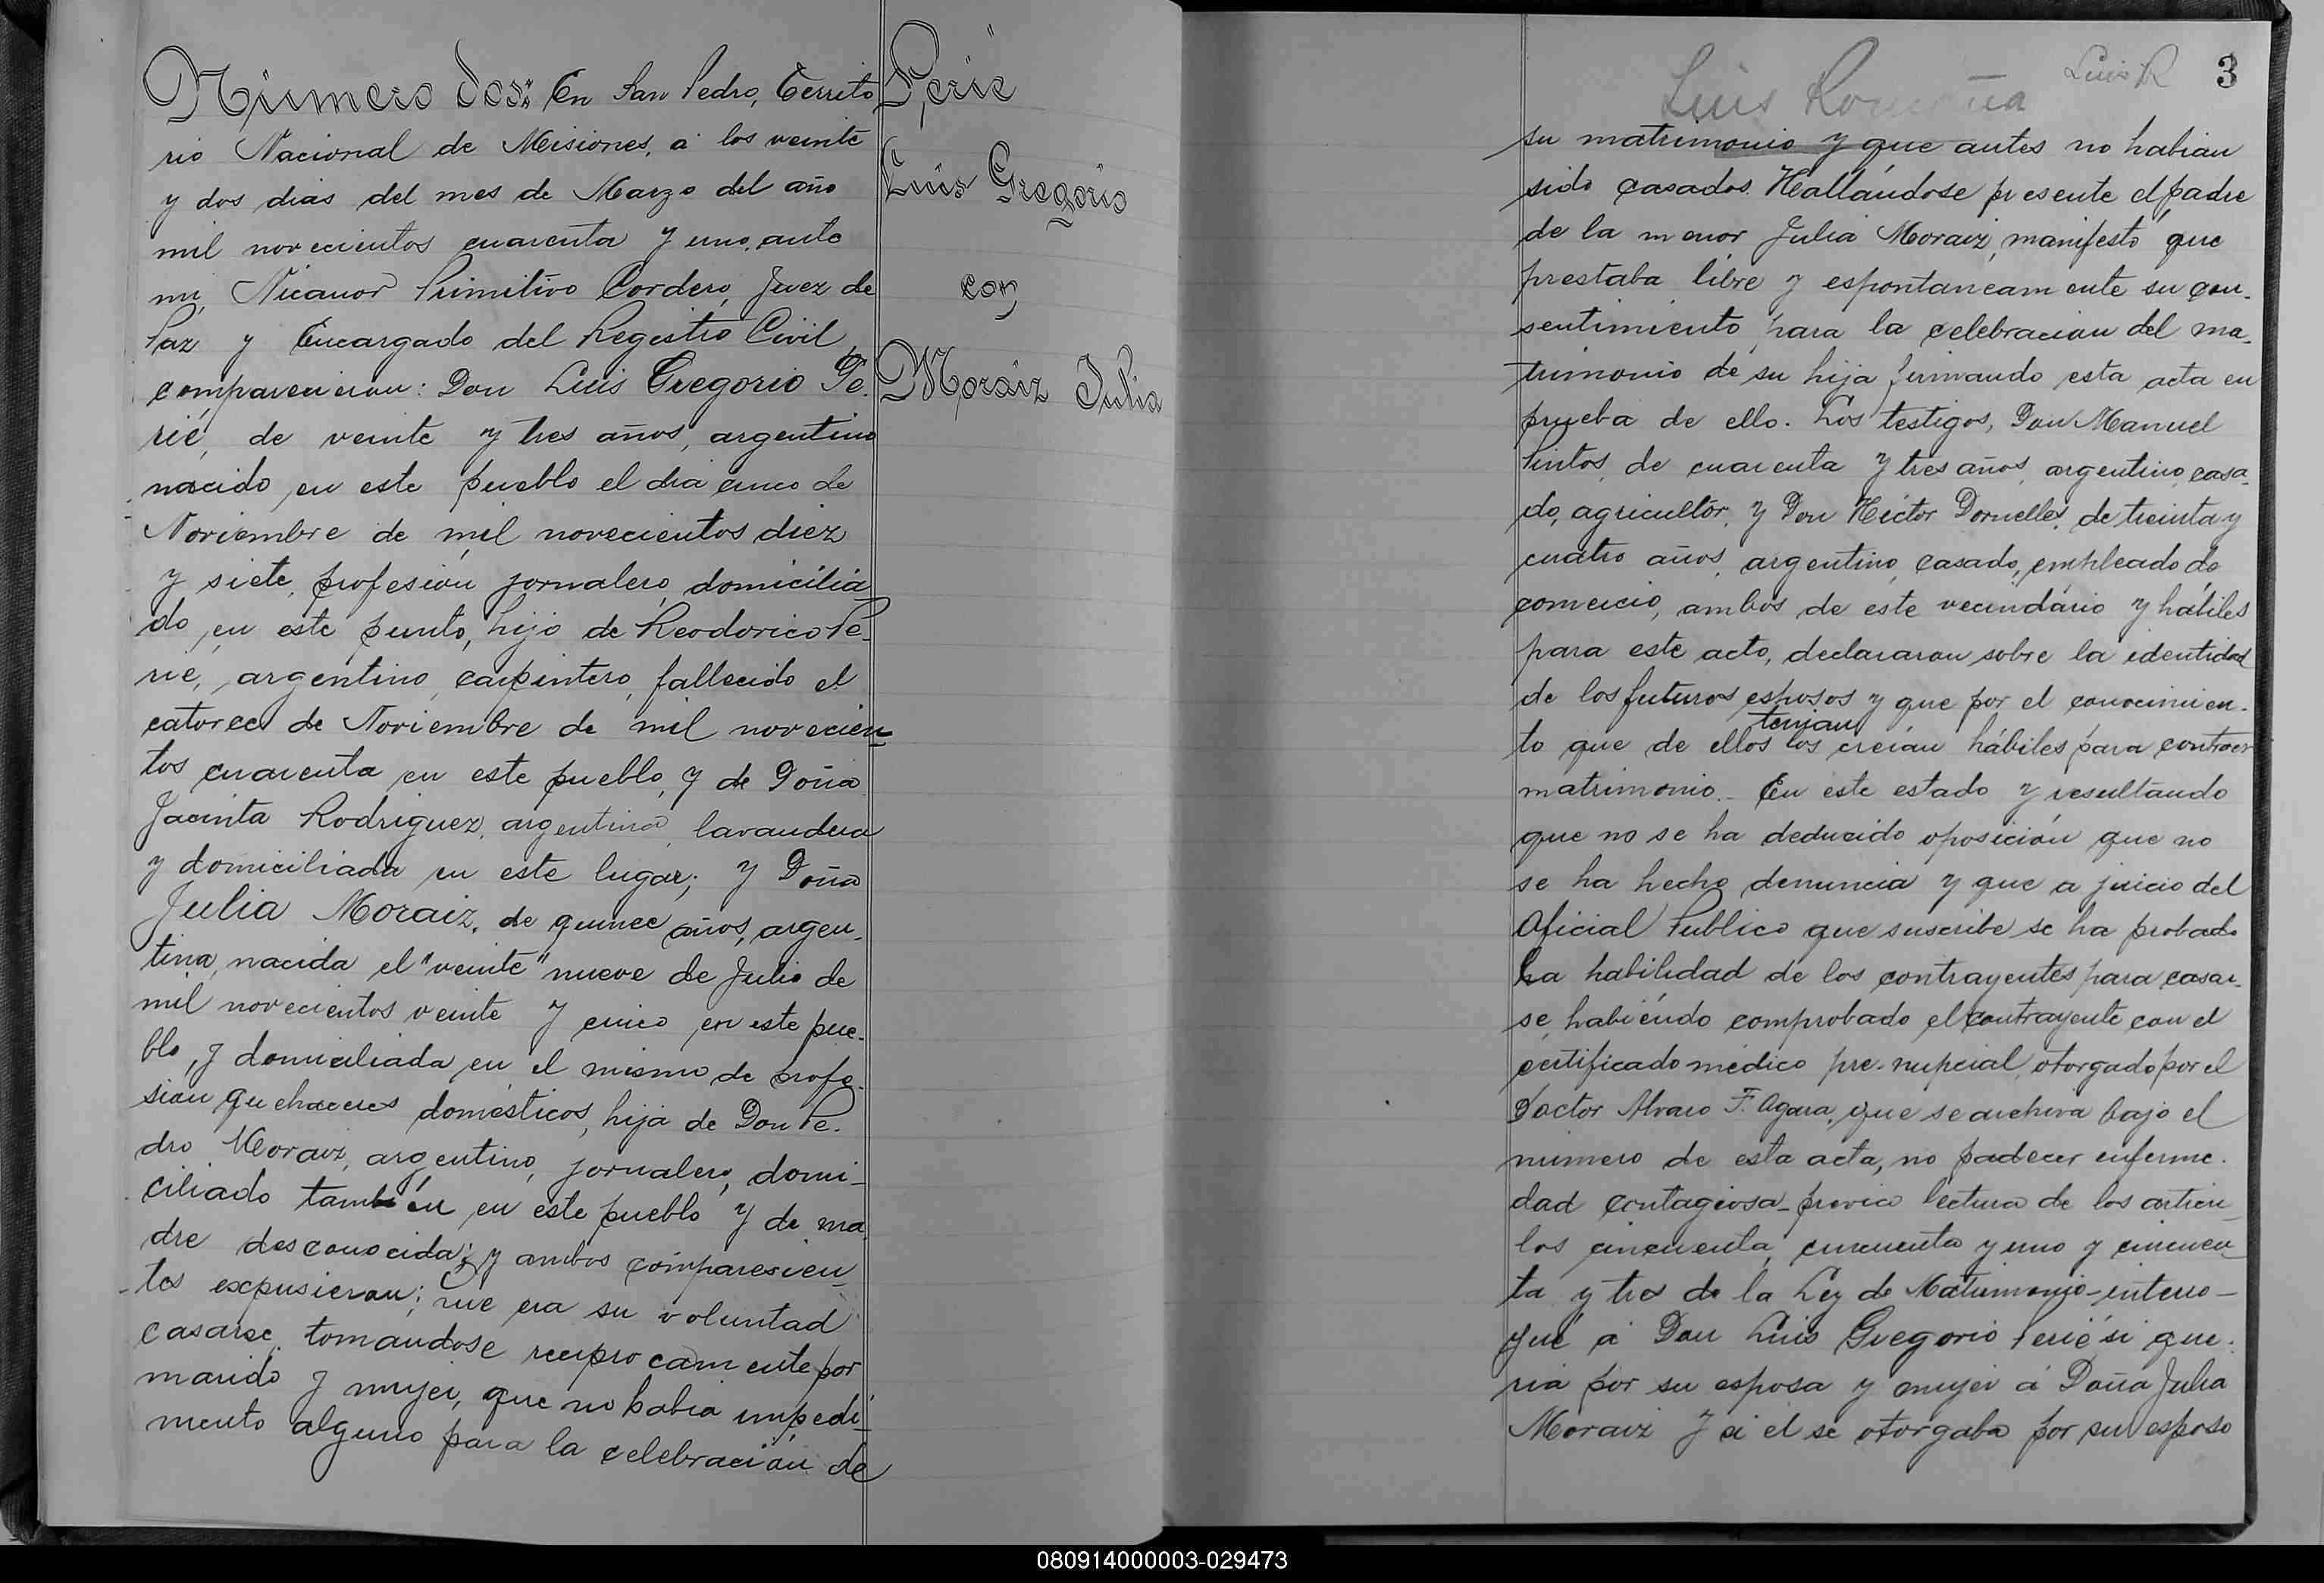 Número dos: En San Pedro, Territo
rio Nacional de Misiones, á los veinte
y dos dias del mes de Marzo del año
mil novecientos cuarenta y uno, ante
mi, Nicanor Primitivo Cordero, Juez de
Paz y Encargado del Registro Civil,
comparecieron: Don Luis Gregorio Pe-
rié, de veinte y tres años, argentino
nacido en este pueblo el dia cinco de
Noviembre de mil novecientos diez
y siete, profesión jornalero, domicilia
do, en este punto, hijo de Reodorico Pe-
rié, argentino, carpintero, fallecido el
catorce de Noviembre de mil novecien-
tos cuarenta en este pueblo, y de Doña
Jacinta Rodriguez, argentina, lavandera
y domiciliada en este lugar; y Doña
Julia Moraiz, de quince años, argen-
tina, nacida el "veinte" nueve de Julio de
mil novecientos veinte y cinco en este pue-
blo, y domiciliada en el mismo de profe-
sion quehaceres domésticos, hija de Don Pe-
dro Moraiz, argentino, jornalero, domi-
ciliado también en este pueblo y de ma
dre desconocida; y ambos comparesien-
tes expusieron; que era su voluntad
casarse tomandose reciprocamente por
marido y mujer, que no habia impedi-
mento alguno para la celebración de
Perié
Luis Gregorio
con
Moraiz Julia
Luis R
3
Luis
su matrimonio y que antes no habian
sido casados. Hallándose presente el padre
de la menor Julia Moraiz, manifestó que
prestaba libre y espontaneamente su con-
sentimiento para la celebracion del ma-
trimonio de su hija firmando esta acta en
prueba de ello. Los testigos, Don Manuel
Pintos, de cuarenta y tres años, argentino, casa-
do, agricultor, y Don Héctor Dornelles, de treinta y
cuatro años, argentino, casado, empleado de
comercio, ambos de este vecindário y hábiles
para este acto, declararon sobre la identidad
de los futuros esposos y que por el conocimien-
tenian
to que de ellos los creian hábiles para contraer
matrimonio.- En este estado y resultando
que no se ha deducido oposición que no
se ha hecho denuncia y que a juicio del
Oficial Publico que suscribe se ha probado
la habilidad de los contrayentes para casar-
se, habiéndo comprobado el contrayente con el
certificado médico pre-nupcial, otorgado por el
Doctor Alvaro F. Agara, que se archiva bajo el
número de esta acta, no padecer enferme-
dad contagiosa- previa lectura de los articu-
los cincuenta, cincuenta y uno y cincuen-
ta y tres de la Ley de Matrimonio- interro-
gué á Don Luis Gregorio Perié si que-
ria por su esposa y mujer á Doña Julia
Moraiz y si él se otorgaba por su esposo
080914000003-029473